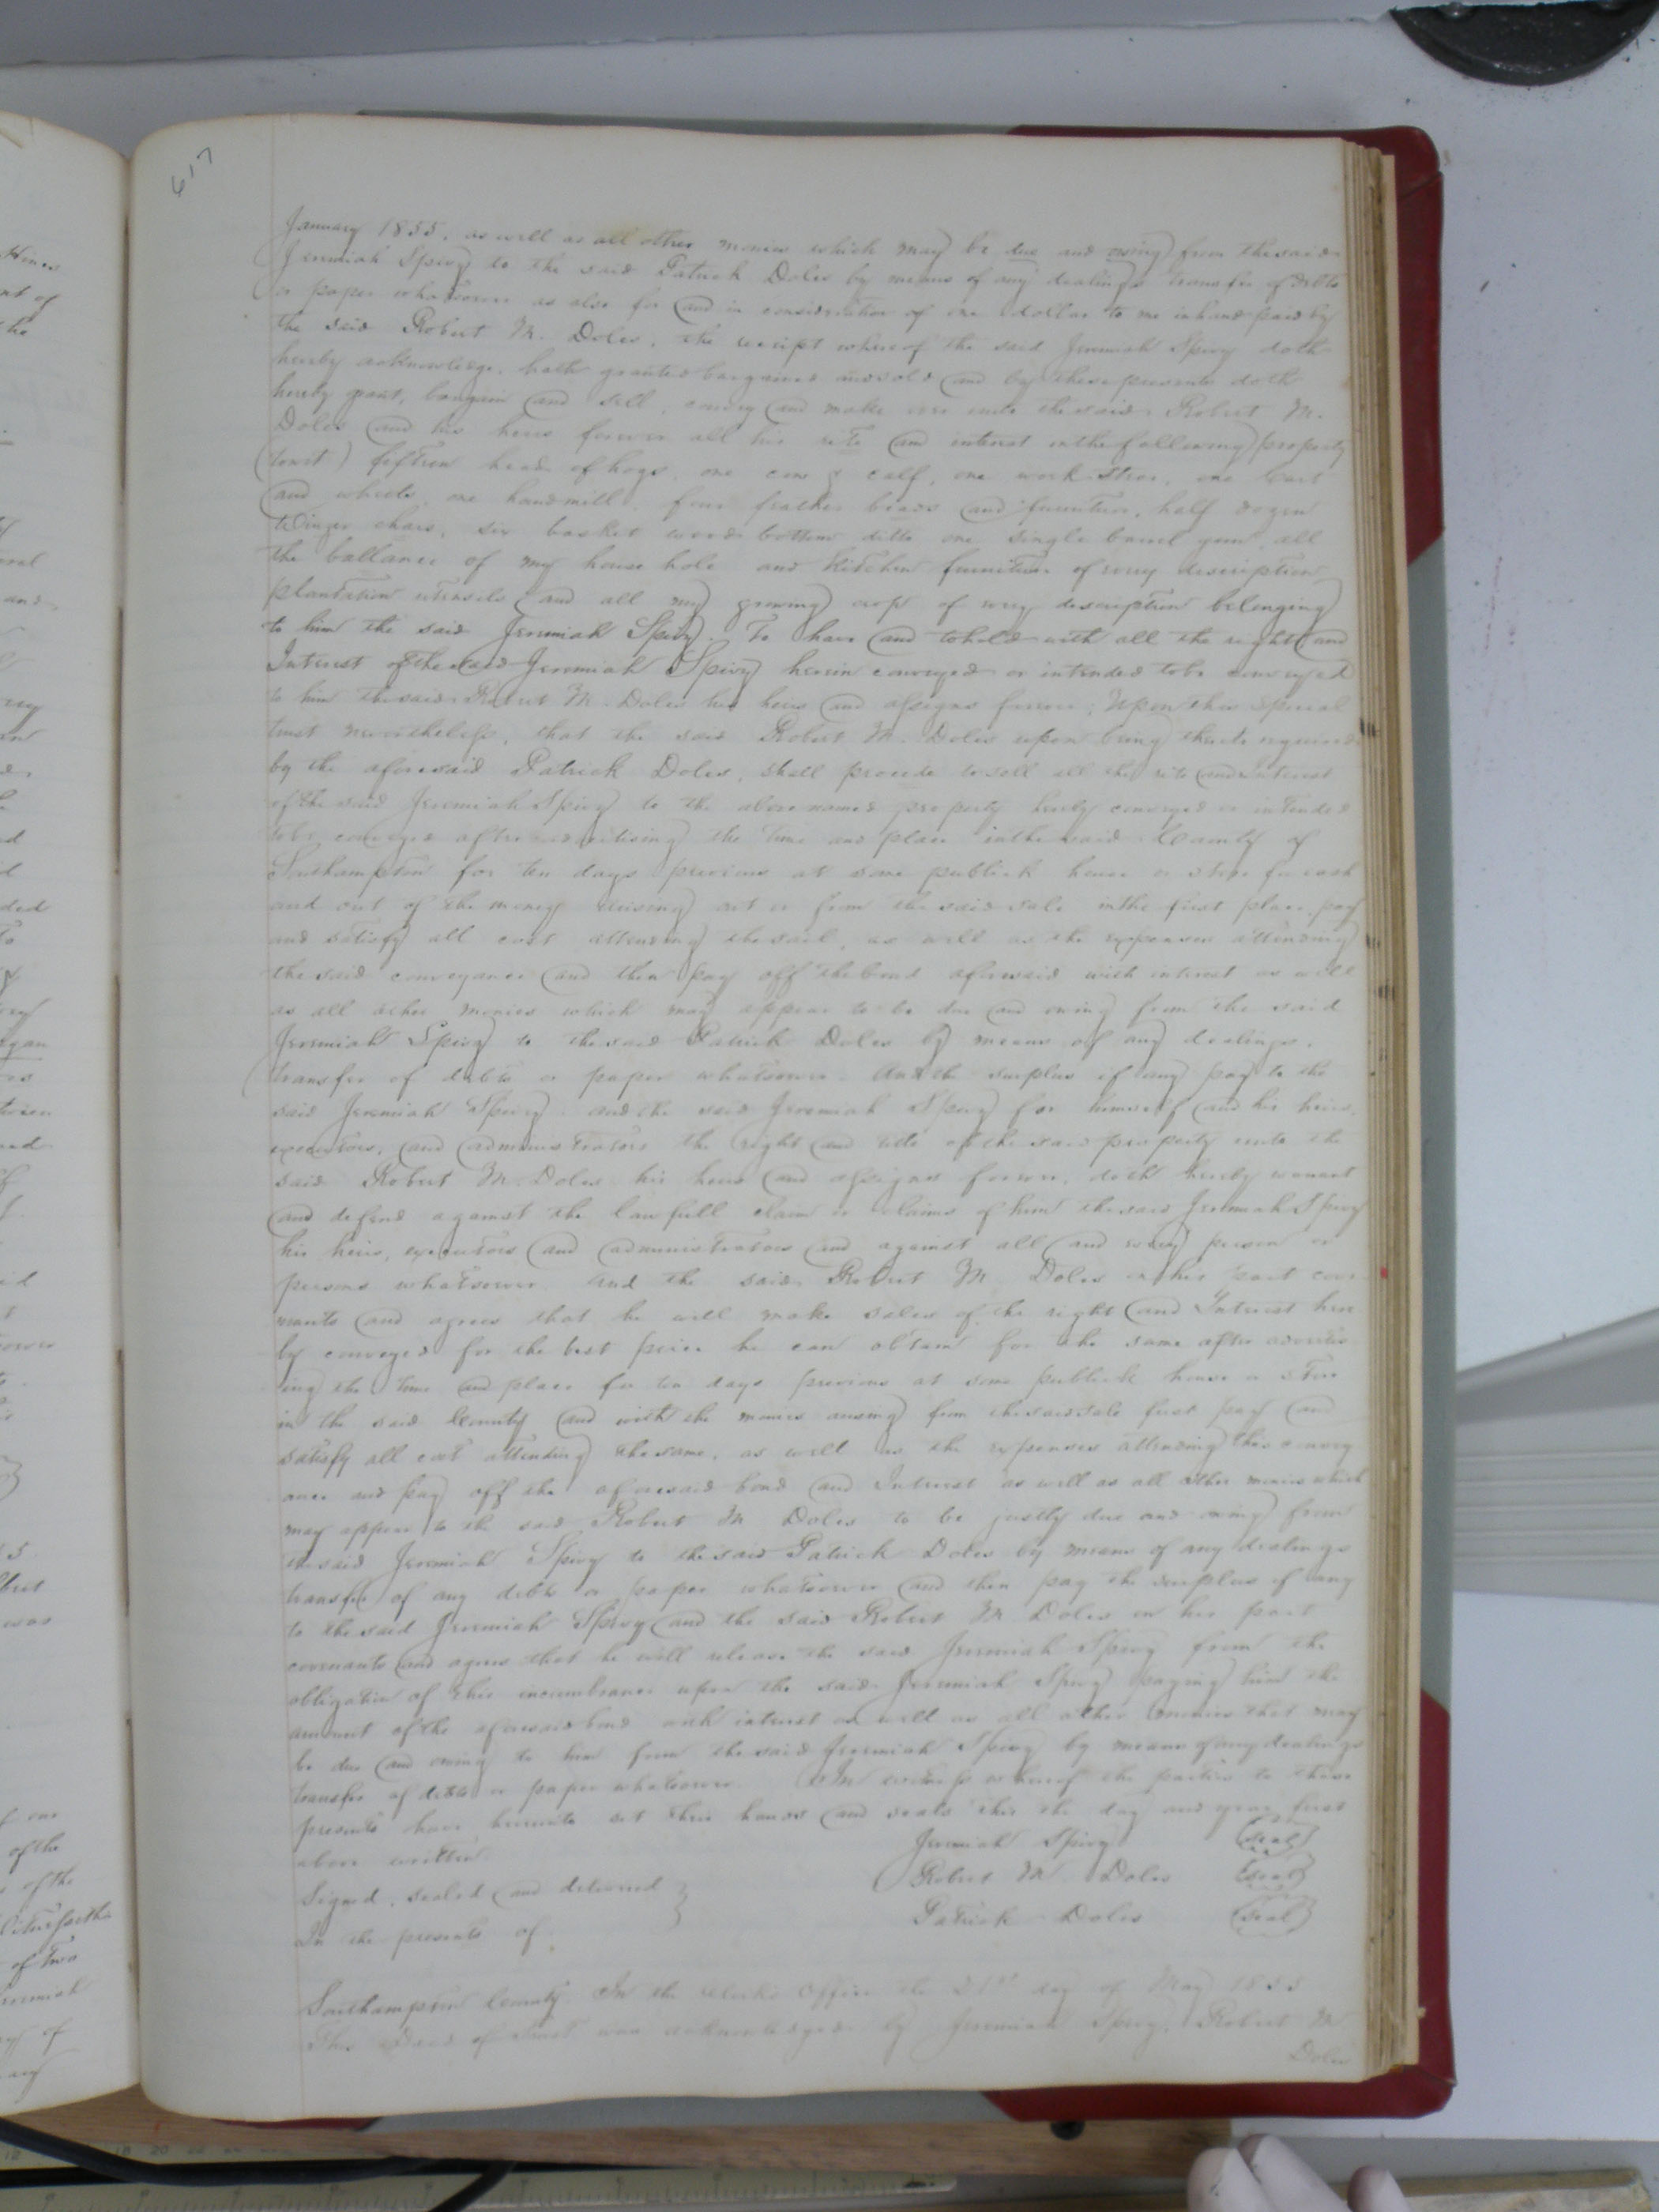 617
January 1855, as well as all other monies which may be due and owing from the said
Jeremiah Spivy to the said Patrick Doles by means of any dealings transfer of debts
or paper whatsoever as also for and in consideration of one dollar to me in hand paid by
the said Robert M. Doles, the receipt whereof the said Jeremiah Spivy doth
hereby acknowledge, hath granted bargained and sold and by these presents doth
hereby grant, bargain and sell, convey and make over unto the said Robert M.
Doles and his heirs forever all his rite and interest in the following property
(towit) fifteen head of hogs, one cow & calf, one work steer, one cart
and wheels, one handmill, four feather beads and furniture, half dozen
Winger chars, six basket wood bottom ditto one single barrel gun, all
the ballance of my house hole and kitchen furniture of every description
plantation utensils and all my growing crop of every description belonging
to him the said Jeremiah Spivy. To have and to hold with all the right and
Interest of the said Jeremiah Spivy herein conveyed or intended to be conveyed
to him the said Robert M. Doles his heirs and assigns forever; Upon this special
trust nevertheless, that the said Robert M. Doles upon being thereto required
by the aforesaid Patrick Doles, shall proceede to sell all the rite and interest
of the said Jeremiah Spivy to the above named property herely conveyed or intended
to be conveyed after advertising the time and place in the said County of
Southampton for ten days previous at some publick house or store for cash
and out of the money arising out or from the said sale in the first place, pay
and satisfy all cost attending the sail, as well as the expenses attending
the said conveyance and then pay off the bond aforesaid with interest as well
as all other monies which may appear to be due and owing from the said
Jeremiah Spivy to the said Patrick Doles by means of any dealings,
transfer of debts or paper whatsoever. And the surplus if any pay to the
said Jeremiah Spivy. and the said Jeremiah Spivy for himself and his heirs,
executors, and administrators the right and title of the said property unto the
said Robert M. Doles his heirs and assigns forever, doth hereby warrant
and defend against the lawfull claim or claims of him the said Jeremiah Spivy
his heirs, executors and administrators and against all and every person or
persons whatsoever. And the said Robert M. Doles on his part cove
nants and agrees that he will make sales of the right and Interest here
by conveyed for the best price he can obtain for the same after advertis
ing the time and place for ten days previous at some publick house or store
in the said County and with the monies arising from the said sale first pay and
satisfy all cost attending the same, as well as the expenses attending this convey
ance and pay off the aforesaid bond and Interest as well as all other monies which
may appear to the said Robert M Doles to be justly due and owing from
the said Jeremiah Spivy to the said Patrick Doles by means of any dealings
transfer of any debts or paper whatsoever and then pay the surplus if any
to the said Jeremiah Spivy and the said Robert M Doles on his part
covenants and agrees that he will release the said Jeremiah Spivy from the
obligation of this incumbrance upon the said Jeremiah Spivy paying him the
amount of the aforesaid bond with interest as well as all other monies that may
be due and owing to him from the said Jeremiah Spivy by means of any dealings
transfer of debts or paper whatsoever. In witness whereof the parties to these
presents have hereunto set their hands and seals this the day and year first
above written
Jeremiah Spivy (seal)
Robert M Doles (seal)
Patrick Doles (seal)
Signed, sealed and delivered
In the presents of
Southampton County In the Clerks Office the 21st day of May 1855
This Deed of Trust was acknowledged by Jeremiah Spivy, Robert M
Doles